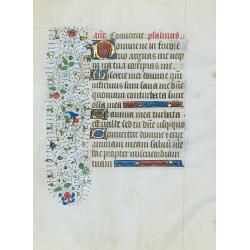 Añ. Convertere. psalmus.
Domine ne in furore
tuo arguas me neqz
in ira tua corripias me.
Miserere mei domine qm̄
infirmus sum sana me dn̄e
quoniam conturbata sunt
ossa mea
Et anima mea turbata
est valde sed tu dn̄e usquequo
Convertere domine et eripe
animam meam salvum me
fac propter misericordiam
tuam